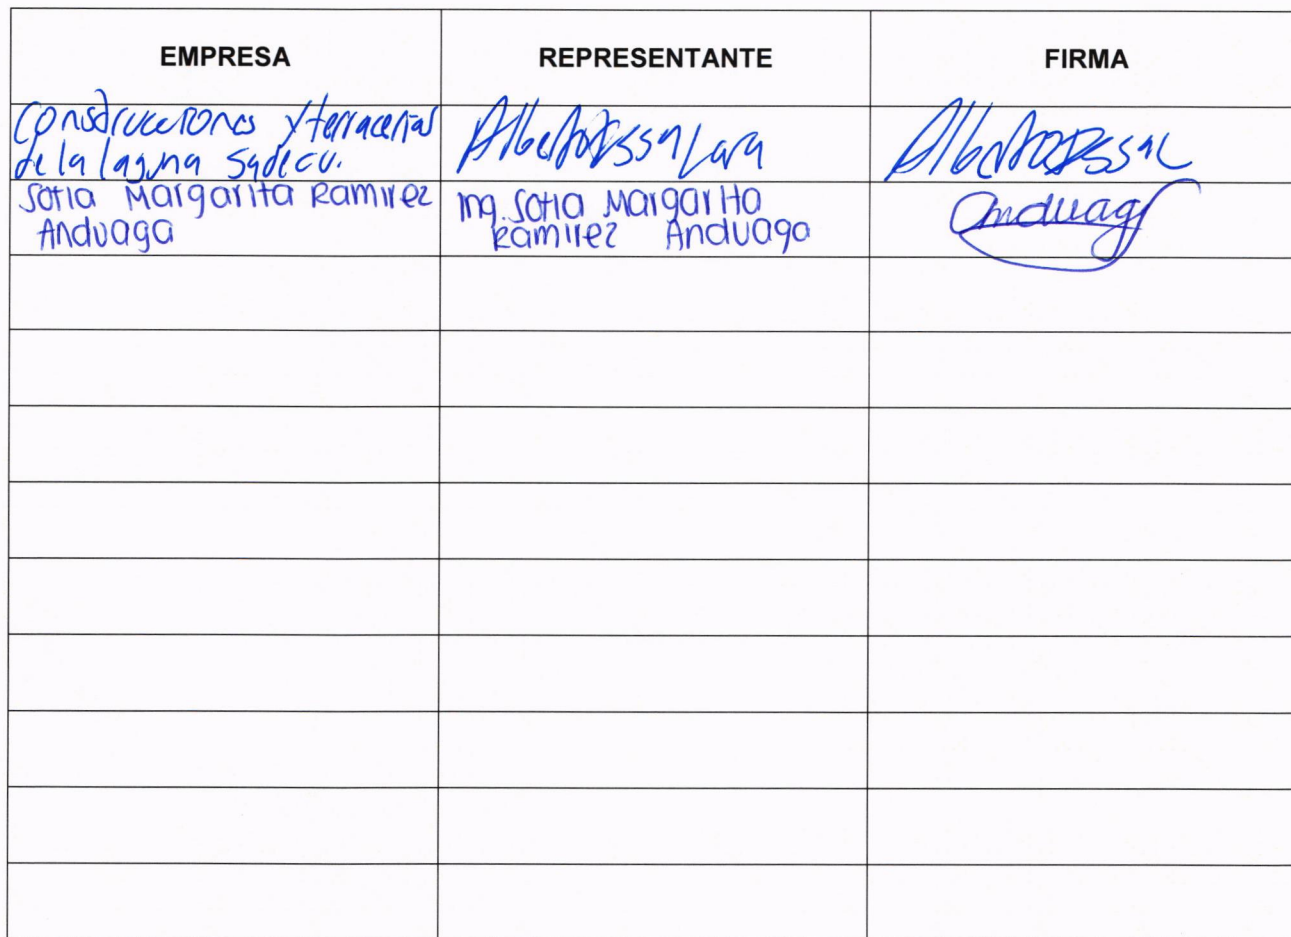 EMPRESA REPRESENTANTE FIRMA
Construcciones y terracerias
de la laguna Sadecv.
Alberto Lara
Alberto
Sofia Margarita Ramirez
Anduaga
Ing. Sofia Margarita
Ramirez Anduaga
Anduaga